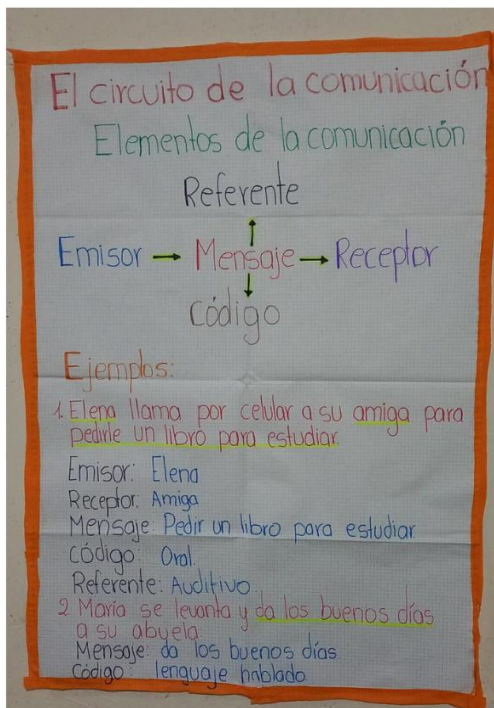 El circuito de la comunicación
Elementos de la comunicación
Referente
Emisor → Mensaje → Receptor
Código
Ejemplos:
1. Elena llama por celular a su amiga para
pedirle un libro para estudiar.
Emisor: Elena
Receptor: Amiga
Mensaje: Pedir un libro para estudiar.
Código: Oral.
Referente: Auditivo
2. María se levanta y da los buenos días
a su abuela
Mensaje: da los buenos días.
Código: lenguaje hablado